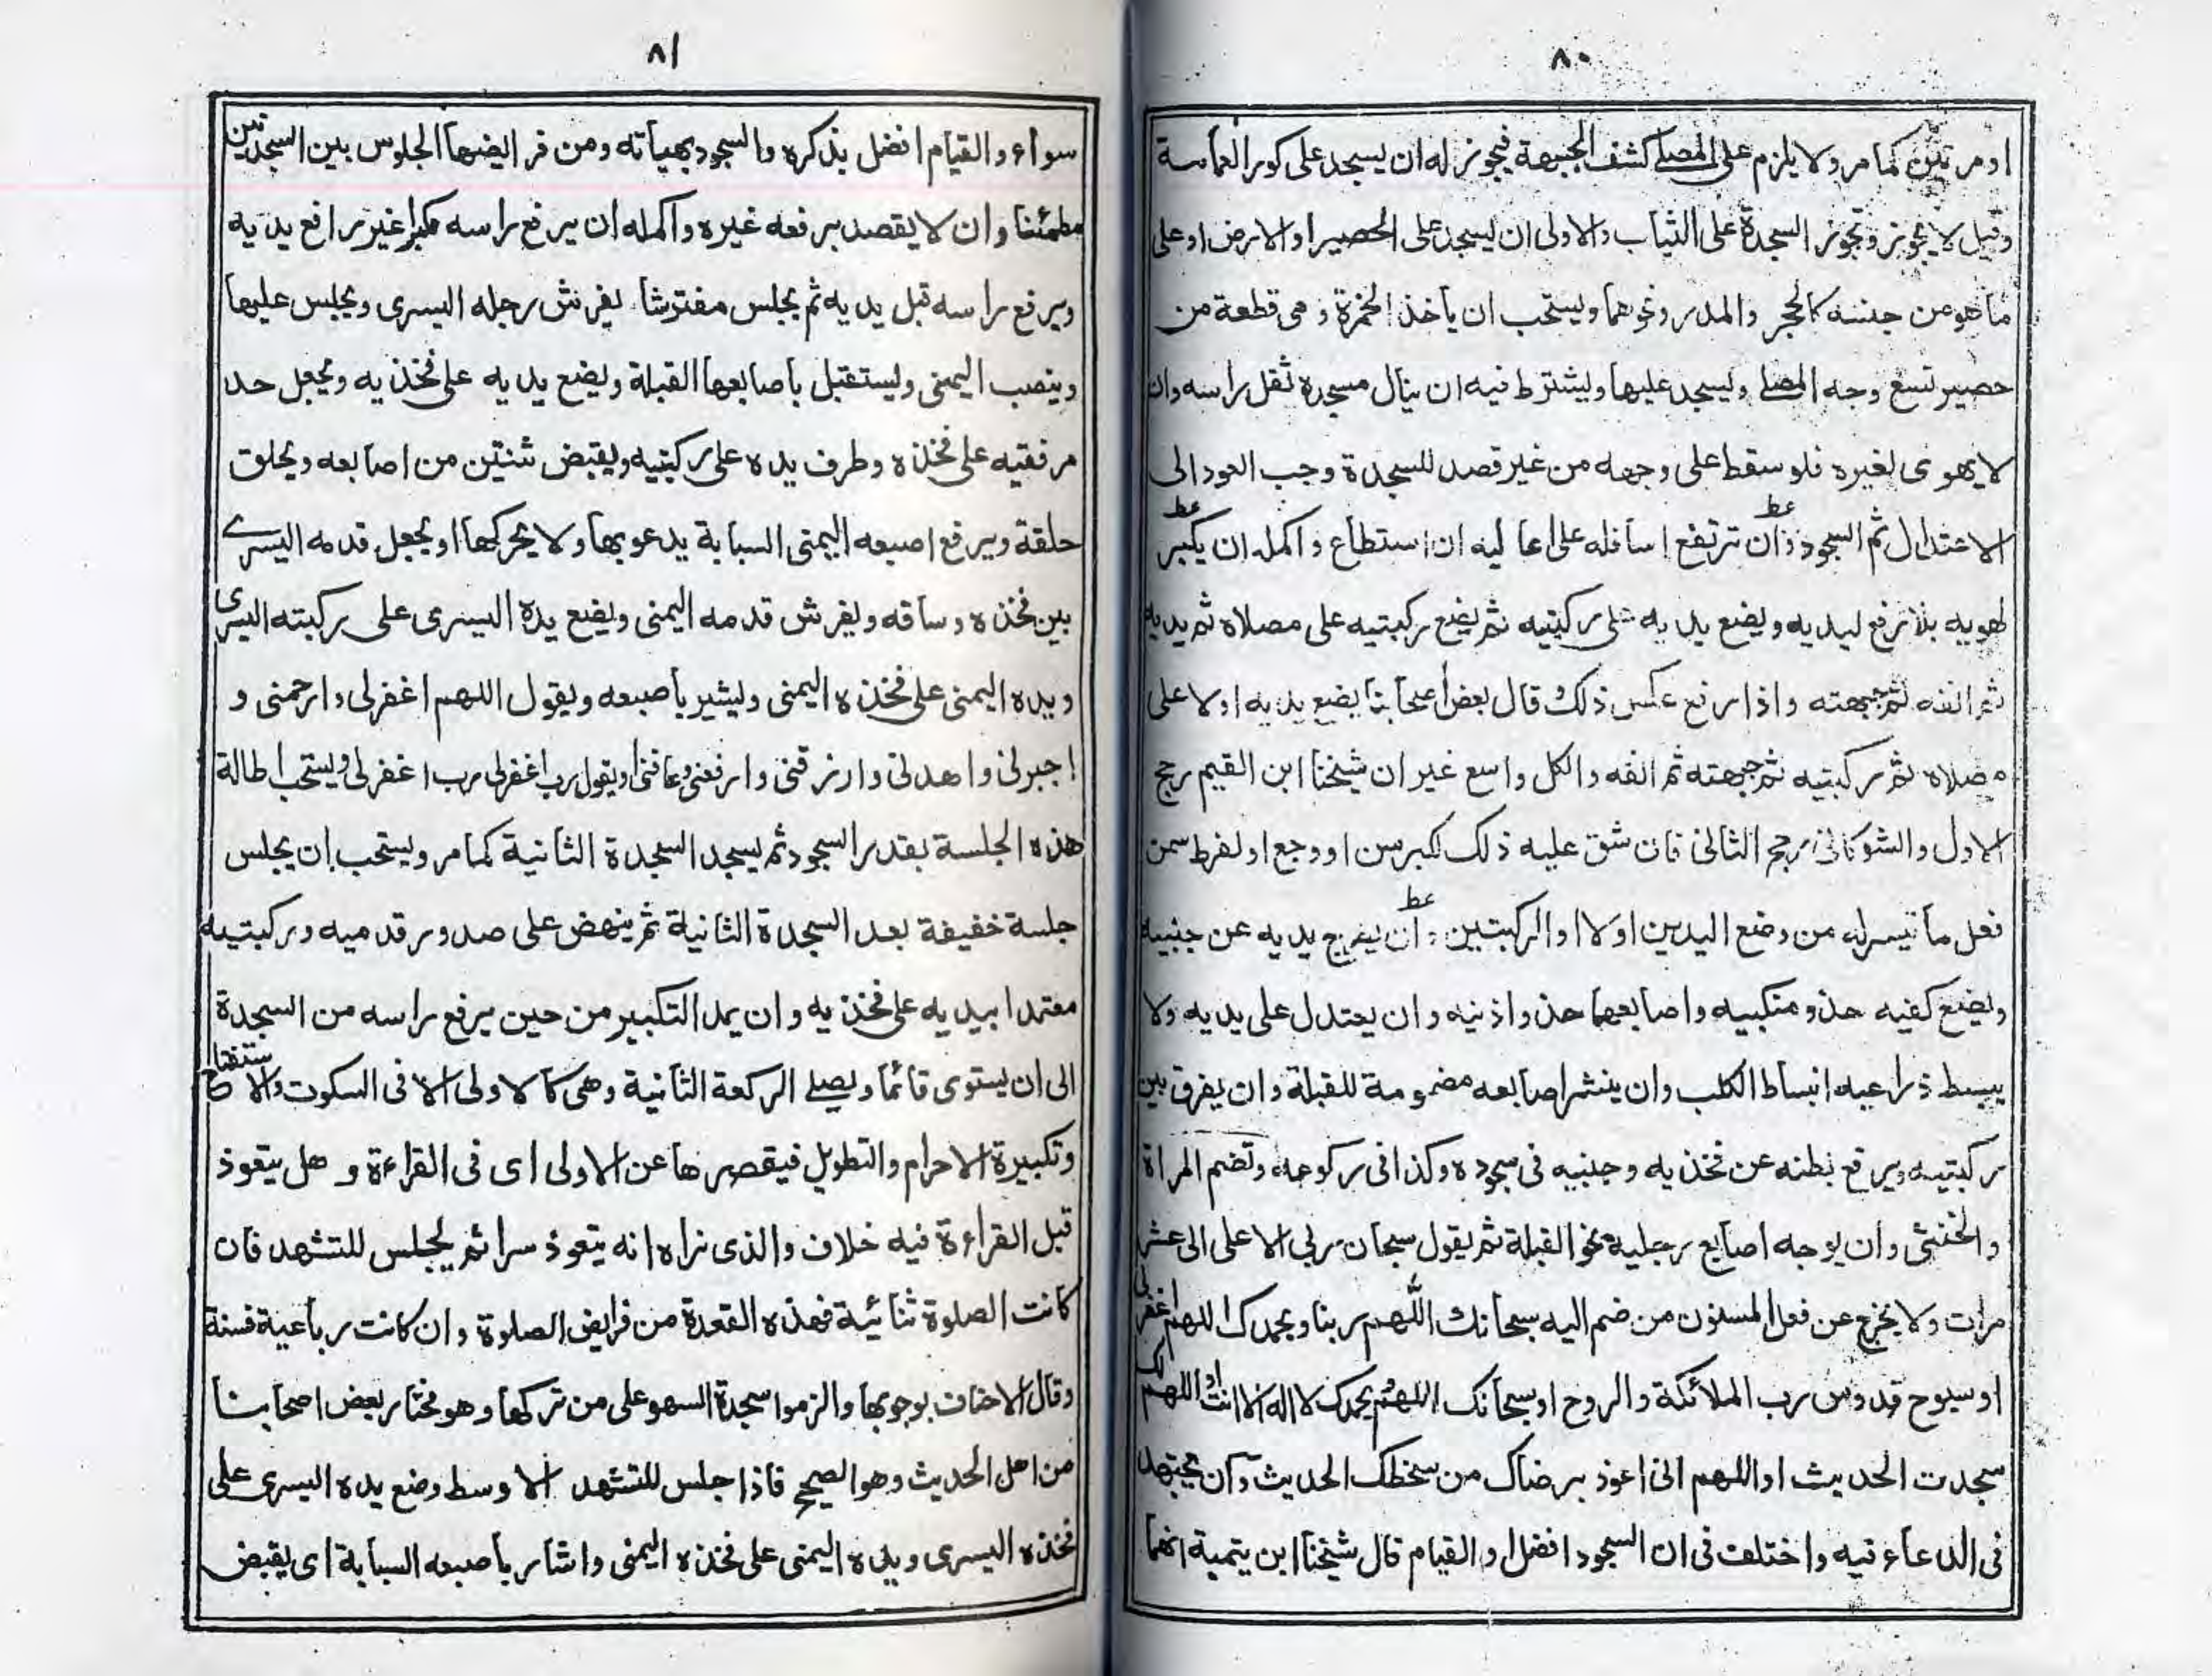 ٨٠
او مرتين كما مر ولا يلزم على المصلے كشف الجبهة فيجوز له ان يسجد على كور العمامة
وقيل لا يجوز وتجوز السجدة على الثياب والاولى ان يسجد على الحصير او الارض او على
ما هو من جنسه كالحجر والمدر ونحوهما ويستحب ان يأخذ الخمرة وهى قطعة من
حصير تسع وجه المصلے ويسجد عليها ويشترط فيه ان ينال مسجده ثقل راسه وان
لا يهوى لغيره فلو سقط على وجهه من غير قصد للسجدة وجب العود الى
الاعتدال ثم السجود وان ترتفع اسافله على اعاليه ان استطاع واكمله ان يكبر
لهويه بلا رفع ليديه ويضع يديه على ركبتيه ثم يضع ركبتيه على مصلاه ثم يديه
ثم انفه ثم جبهته واذا رفع عكس ذلك قال بعض اصحابنا يضع يديه اولا على
مصلاه ثم ركبتيه ثم جبهته ثم انفه والكل واسع غير ان شيخنا ابن القيم رجح
الاول والشوكانى رجح الثانى فان شق عليه ذلك لكبر سن او وجع او لفرط سمن
فعل ما تيسر له من وضع اليدين اولا او الركبتين وان يفرج يديه عن جنبيه
ويضع كفيه حذو منكبيه واصابعهما حذو اذنيه وان يعتدل على يديه ولا
يبسط ذراعيه انبساط الكلب وان ينشر اصابعه مضمومة للقبلة وان يفرق بين
ركبتيه ويرفع بطنه عن فخذيه وجنبيه فى سجوده وكذا فى ركوعه وتضم المراة
والخنثى وان يوجه اصابع رجليه نحو القبلة ثم يقول سبحان ربى الاعلى الى عشر
مرات ولا يخرج عن فعل المسنون من ضم اليه سبحانك اللهم ربنا وبحمدك اللهم اغفر لى
او سبوح قدوس رب الملائكة والروح او سبحانك اللهم بحمدك لا اله الا انت او اللهم لك
سجدت الحديث او اللهم انى اعوذ برضاك من سخطك الحديث وان يجتهد
فى الدعاء فيه واختلف فى ان السجود افضل او القيام قال شيخنا ابن تيمية انهما
٨١
سواء والقيام افضل بذكره والسجود بهياته ومن فرايضها الجلوس بين السجدتين
مطمئنا وان لا يقصد برفعه غيره واكمله ان يرفع راسه مكبرا غير رافع يديه
ويرفع راسه قبل يديه ثم يجلس مفترشا يفرش رجله اليسرى ويجلس عليها
وينصب اليمنى ويستقبل بأصابعها القبلة ويضع يديه على فخذيه ويجعل حد
مرفقيه على فخذه وطرف يده على ركبتيه ويقبض ثنتين من اصابعه ويحلق
حلقة ويرفع اصبعه اليمنى السبابة يدعو بها ولا يحركها او يجعل قدمه اليسرے
بين فخذه وساقه ويفرش قدمه اليمنى ويضع يده اليسرى على ركبته اليسرى
ويده اليمنى على فخذه اليمنى ويشير بأصبعه ويقول اللهم اغفر لى وارحمنى و
اجبرنى واهدنى وارزقنى وارفعنى وعافنى او يقول رب اغفر لى رب اغفر لى ويستحب اطالة
هذه الجلسة بقدر السجود ثم يسجد السجدة الثانية كما مر ويستحب ان يجلس
جلسة خفيفة بعد السجدة الثانية ثم ينهض على صدور قدميه وركبتيه
معتمدا بيديه على فخذيه وان يمد التكبير من حين يرفع راسه من السجدة
الى ان يستوى قائما ويصلے الركعة الثانية وهى كالاولى الا فى السكوت والاستفتاح
وتكبيرة الاحرام والتطويل فيقصرها عن الاولى اى فى القراءة و هل يتعوذ
قبل القراءة فيه خلاف والذى نراه انه يتعوذ سرا ثم يجلس للتشهد فان
كانت الصلوة ثنائية فهذه القعدة من فرايض الصلوة وان كانت رباعية فسنة
وقال الاحناف بوجوبها والزموا سجدة السهو على من تركها وهو مختار بعض اصحابنا
من اهل الحديث وهو الصحيح فأذا جلس للتشهد الاوسط وضع يده اليسرى على
فخذه اليسرى ويده اليمنى على فخذه اليمنى واشار بأصبعه السبابة اى يقبض